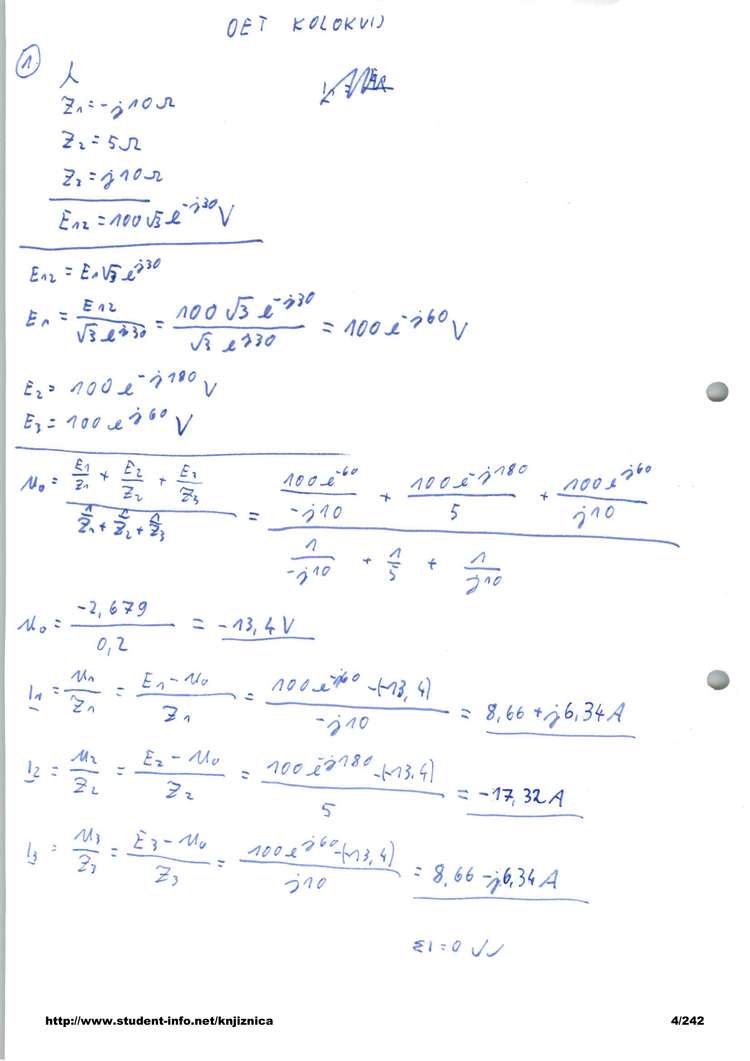 OET KOLOKVIJ
1
Z1 = -j10Ω
Z2 = 5Ω
Z3 = j10Ω
E12 = 100√3 e^-j30 V
E12 = E1√3 e^j30
E1 = E12 / (√3 e^j30) = 100√3 e^-j30 / (√3 e^j30) = 100 e^-j60 V
E2 = 100 e^-j180 V
E3 = 100 e^j60 V
U0 = (E1/Z1 + E2/Z2 + E3/Z3) / (1/Z1 + 1/Z2 + 1/Z3) = (100 e^-60 / -j10 + 100 e^-j180 / 5 + 100 e^j60 / j10) / (1/-j10 + 1/5 + 1/j10)
U0 = -2,679 / 0,2 = -13,4 V
I1 = U1/Z1 = (E1 - U0)/Z1 = (100 e^-j60 - (-13,4)) / -j10 = 8,66 + j6,34 A
I2 = U2/Z2 = (E2 - U0)/Z2 = (100 e^-j180 - (-13,4)) / 5 = -17,32 A
I3 = U3/Z3 = (E3 - U0)/Z3 = (100 e^j60 - (-13,4)) / j10 = 8,66 - j6,34 A
ΣI = 0 ✓✓
http://www.student-info.net/knjiznica 4/242